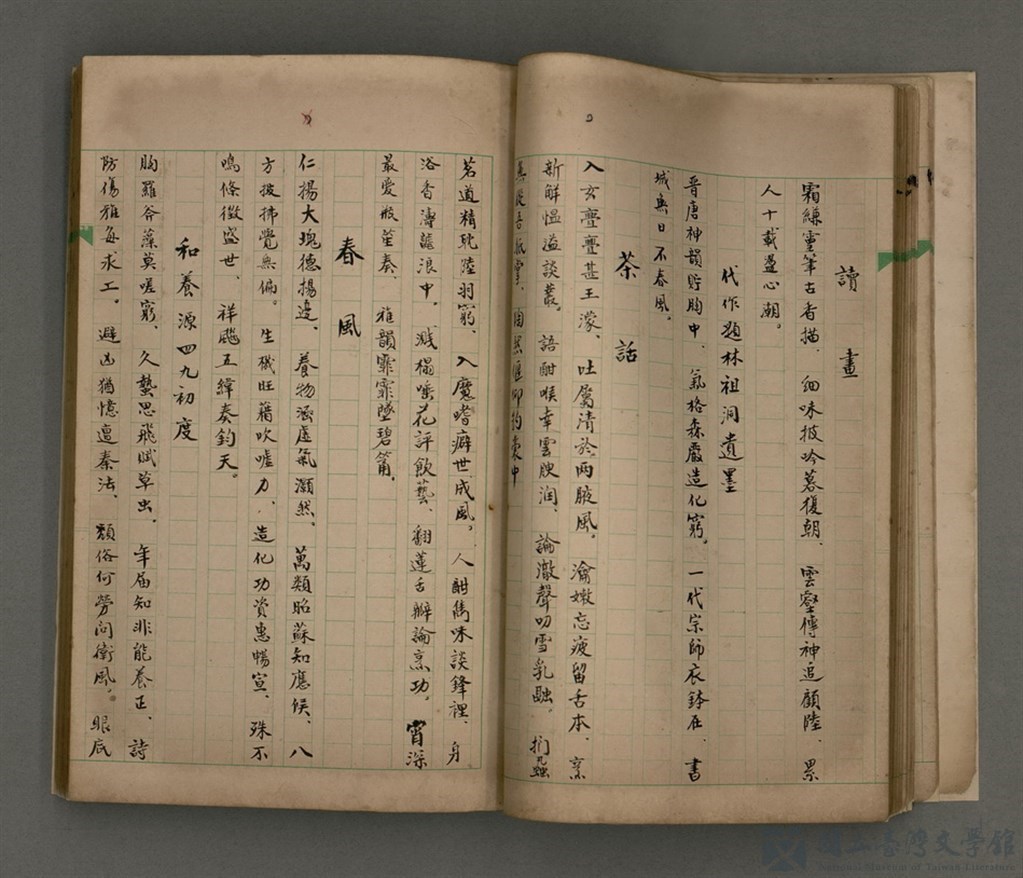 讀畫
霜縑靈筆古香描、細味披吟暮復朝、雲壑傳神追顧陸、累
人十載盪心潮。
代作題林祖洞遺墨
晉唐神韻貯胸中、氣格森嚴造化窮。一代宗師衣鉢在、書
城無日不春風。
茶話
入玄亹亹甚王濛、吐屬清於兩腋風。瀹嫩忘疲留舌本、烹
新解慍溢談叢。語酣喉幸雲腴潤、論激聲叨雪乳融。捫蝨
茗道精耽陸羽窮、入魔嗜癖世成風。人酣雋味談鋒裡、身
浴香濤謔浪中。濺榻唾花評飲藝、翻蓮舌辯論烹功。宵深
最愛瓶笙奏、雅韻霏霏墜碧筩。
春風
仁揚大塊德揚邊、養物涵虛氣灝然、萬類昭蘇知應候、八
方披拂覺無偏。生機旺藉吹噓力、造化功資惠暢宣、殊不
鳴條徵盛世、祥飈五緯奏鈞天。
和養源四九初度
胸羅苔藻莫嗟窮、久蟄思飛賦草虫、年届知非能養正、詩
防傷雅每求工。避凶猶憶遭秦法、頹俗何勞問衛風。眼底
國立臺灣文學館
National Museum of Taiwan Literature